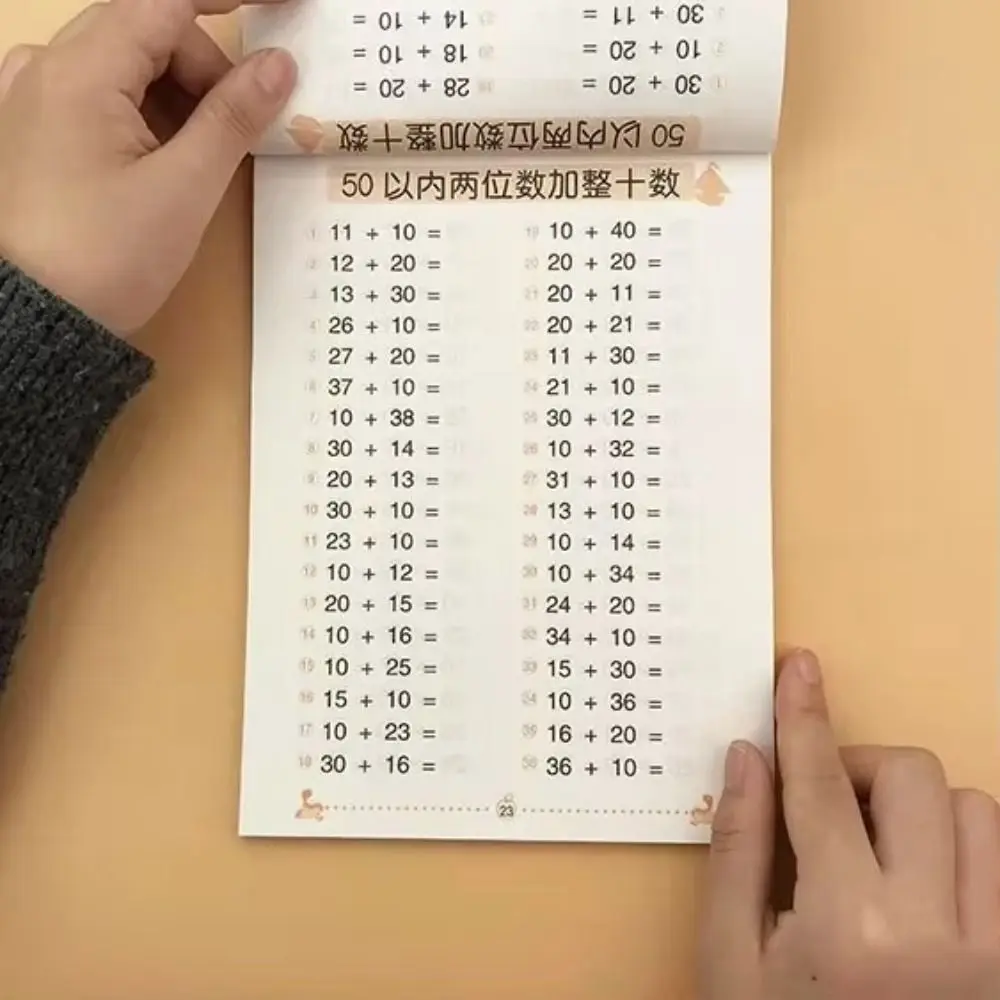 14 + 10 =
30 + 11 =
18 + 10 =
10 + 20 =
28 + 20 =
30 + 20 =
50 以内两位数加整十数
50 以内两位数加整十数
1 11 + 10 =
2 12 + 20 =
3 13 + 30 =
4 26 + 10 =
5 27 + 20 =
6 37 + 10 =
7 10 + 38 =
8 30 + 14 =
9 20 + 13 =
10 30 + 10 =
11 23 + 10 =
12 10 + 12 =
13 20 + 15 =
14 10 + 16 =
15 10 + 25 =
16 15 + 10 =
17 10 + 23 =
18 30 + 16 =
19 10 + 40 =
20 20 + 20 =
21 20 + 11 =
22 20 + 21 =
23 11 + 30 =
24 21 + 10 =
25 30 + 12 =
26 10 + 32 =
27 31 + 10 =
28 13 + 10 =
29 10 + 14 =
30 10 + 34 =
31 24 + 20 =
32 34 + 10 =
33 15 + 30 =
34 10 + 36 =
35 16 + 20 =
36 36 + 10 =
23